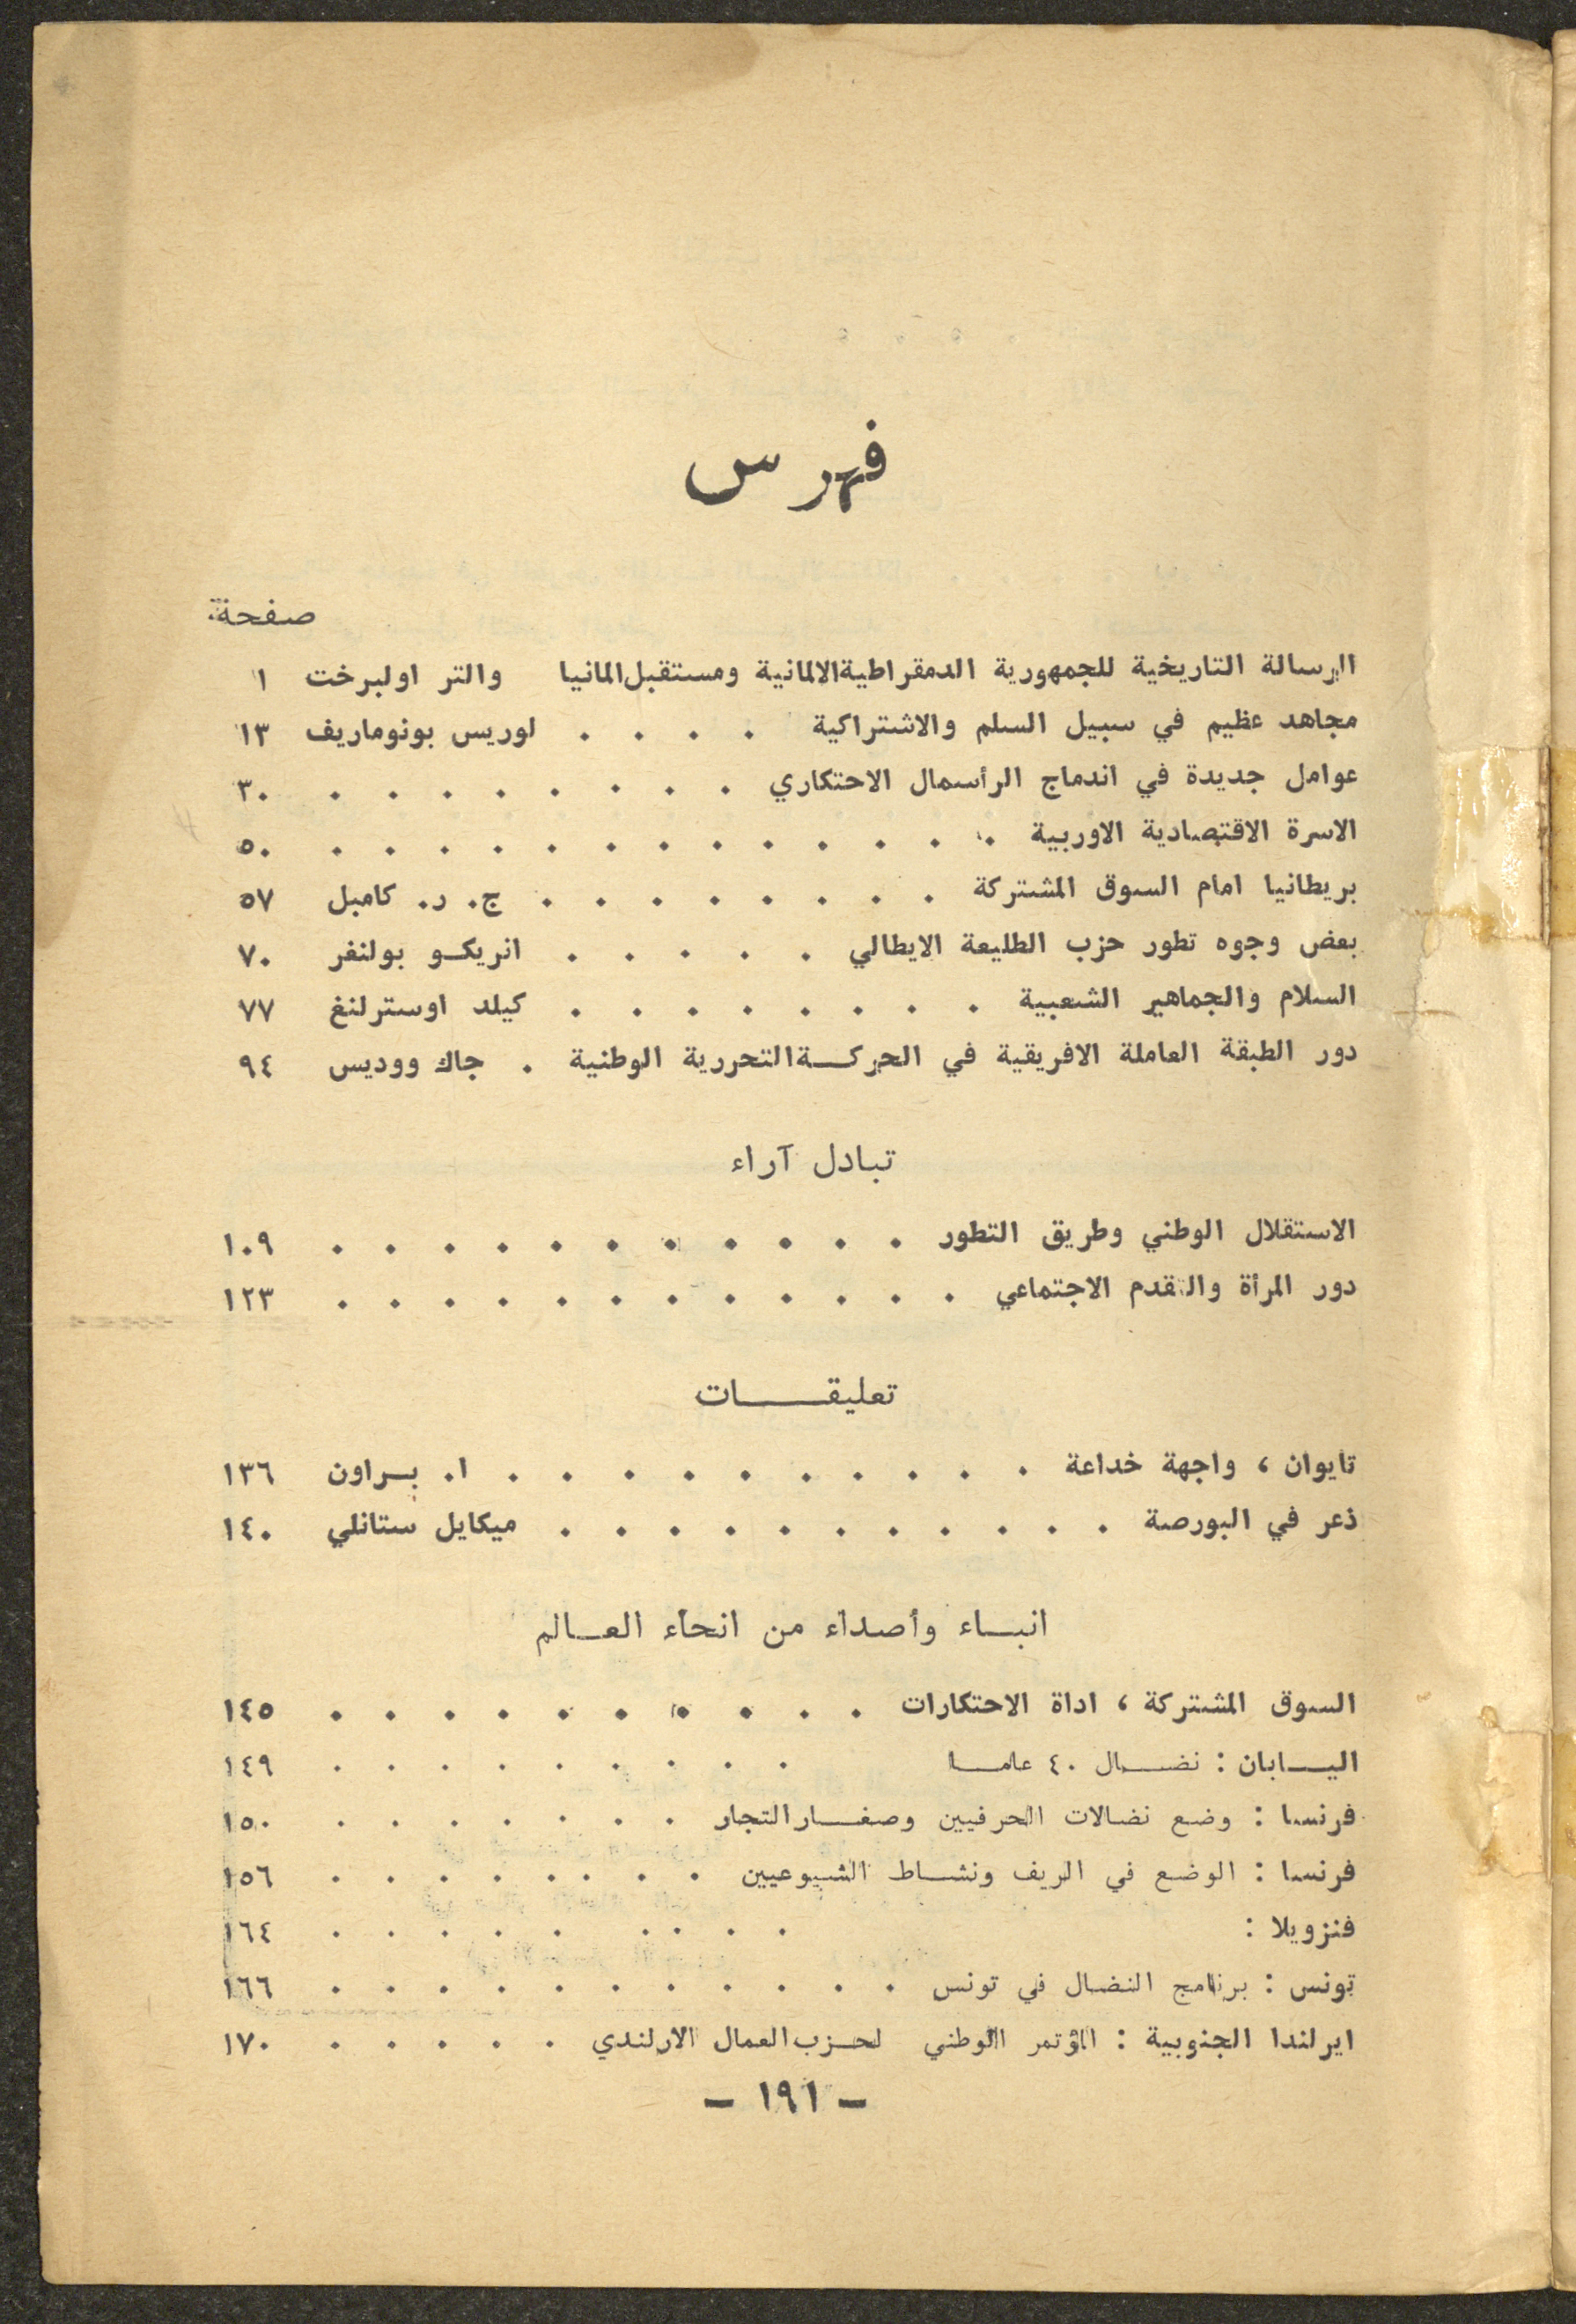 فهرس
صفحة
الرسالة التاريخية للجمهورية الدمقراطية الالمانية ومستقبل المانيا والتر اولبرخت ١
مجاهد عظيم في سبيل السلم والاشتراكية . . . . لوريس بونوماريف ١٣
عوامل جديدة في اندماج الرأسمال الاحتكاري . . . . . . . . ٣٠
الاسرة الاقتصادية الاوربية . . . . . . . . . . . . . ٥٠
بريطانيا امام السوق المشتركة . . . . . . . . ج. ر. كامبل ٥٧
بعض وجوه تطور حزب الطليعة الايطالي . . . . . انريكو بولنغر ٧٠
السلام والجماهير الشعبية . . . . . . . . كيلد اوسترلنغ ٧٧
دور الطبقة العاملة الافريقية في الحركة التحررية الوطنية . جاك ووديس ٩٤
تبادل آراء
الاستقلال الوطني وطريق التطور . . . . . . . . . . . ١٠٩
دور المرأة والتقدم الاجتماعي . . . . . . . . . . . . ١٢٣
تعليقات
تايوان ، واجهة خداعة . . . . . . . . . . ا. براون ١٣٦
ذعر في البورصة . . . . . . . . . . . ميكايل ستانلي ١٤٠
انباء وأصداء من انحاء العالم
السوق المشتركة ، اداة الاحتكارات . . . . . . . . . . ١٤٥
اليابان : نضال ٤٠ عاما . . . . . . . . . ١٤٩
فرنسا : وضع نضالات الحرفيين وصغار التجار . . . . . . . ١٥٠
فرنسا : الوضع في الريف ونشاط الشيوعيين . . . . . . . . ١٥٦
فنزويلا : . . . . . . . . . ١٦٤
تونس : برنامج النضال في تونس . . . . . . . . . . . ١٦٦
ايرلندا الجنوبية : المؤتمر الوطني لحزب العمال الارلندي . . . . . ١٧٠
– ١٩١ –